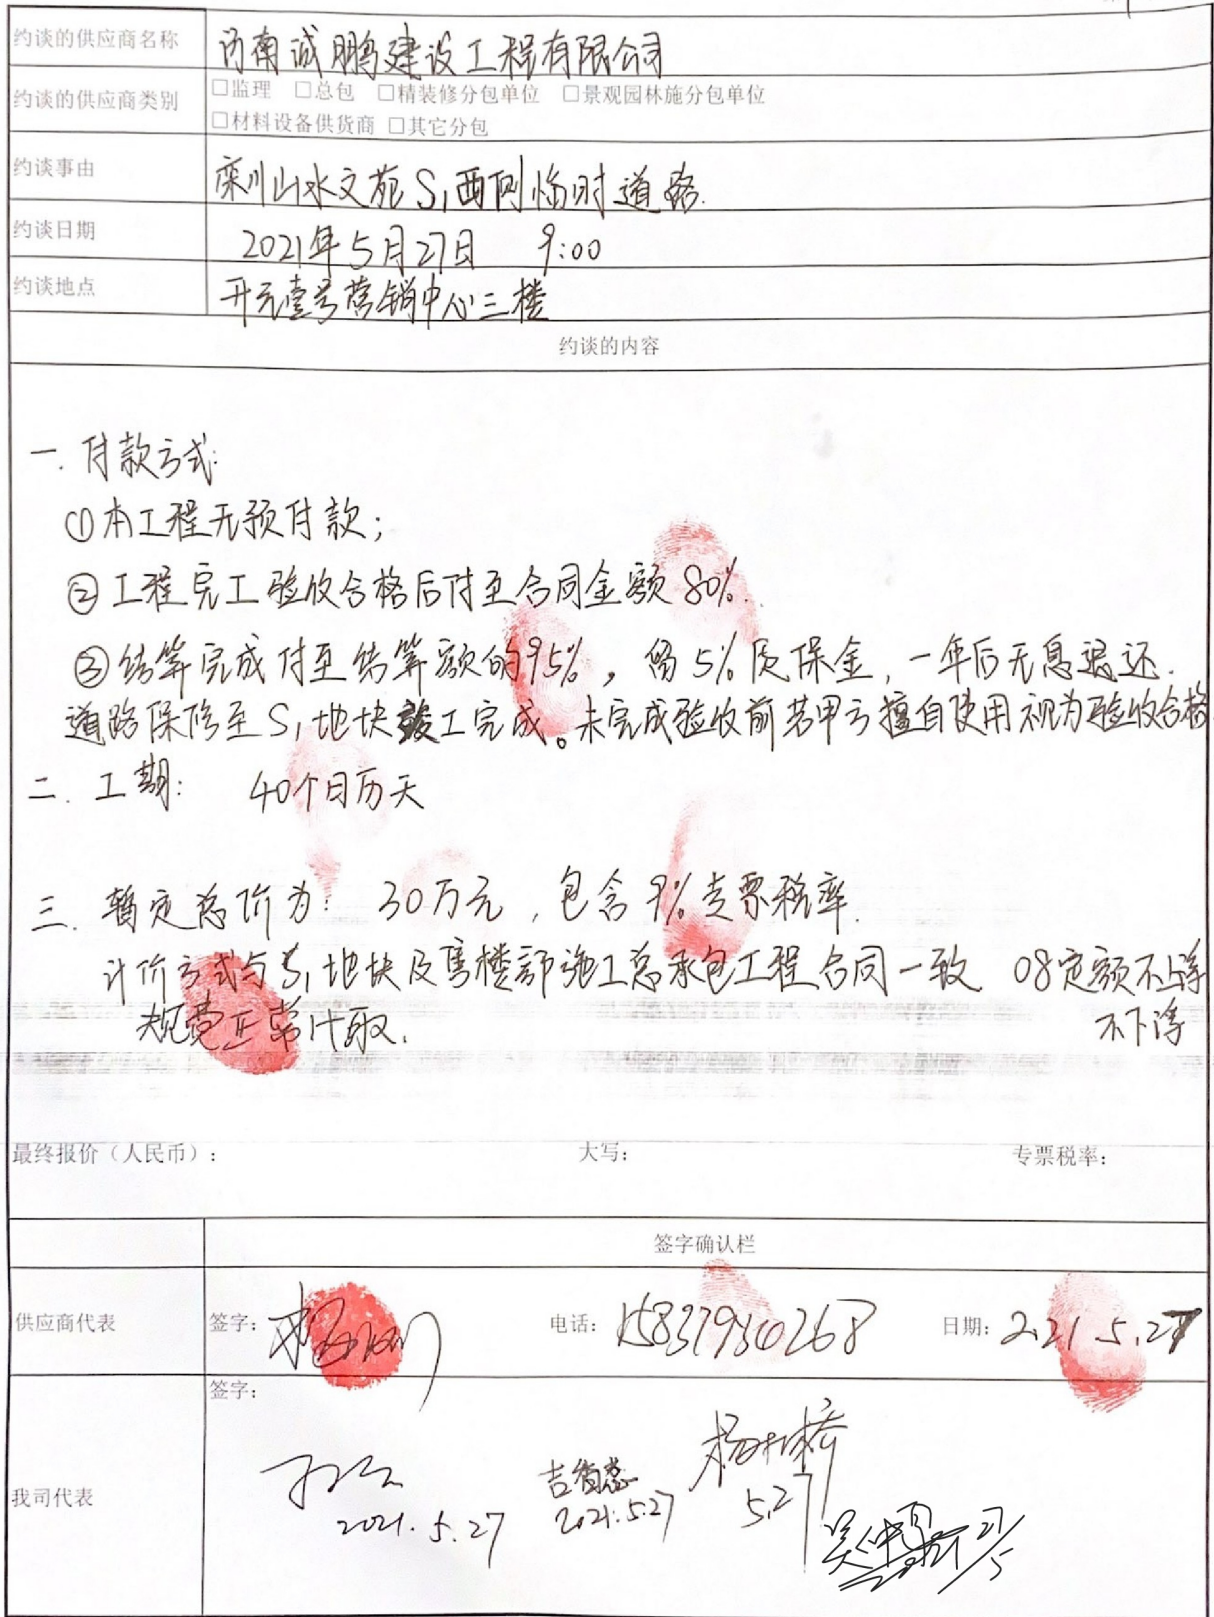 约谈的供应商名称 河南诚鹏建设工程有限公司
约谈的供应商类别 □监理 □总包 □精装修分包单位 □景观园林施分包单位
□材料设备供货商 □其它分包
约谈事由 栾川山水文苑S1西侧临时道路.
约谈日期 2021年5月27日 9:00
约谈地点 开元壹号营销中心三楼
约谈的内容
一. 付款方式:
①本工程无预付款;
②工程完工验收合格后付至合同金额80%.
③结算完成付至结算额的95%, 留5%质保金, 一年后无息退还.
道路保修至S1地块竣工完成。未完成验收前若甲方擅自使用视为验收合格
二. 工期: 40个日历天
三. 暂定总价为: 30万元, 包含9%专票税率.
计价方式与S1地块及售楼部施工总承包工程合同一致 08定额不上浮
不下浮
规费正常计取.
最终报价（人民币）: 大写: 专票税率:
签字确认栏
供应商代表 签字: 电话: 15837930268 日期: 2021.5.27
签字:
我司代表
杨树桥
2021.5.27 2021.5.27 5.27
27/5